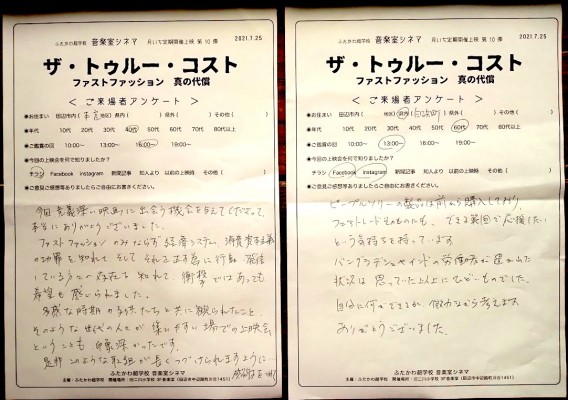 ふたかわ超学校 音楽室シネマ 月いち定期開催上映 第10弾 2021.7.25
ザ・トゥルー・コスト
ファストファッション 真の代償
＜ご来場者アンケート＞
◉お住まい 田辺市内( 地区) 県内( ) 県外( ) その他( )
◉年代 10代 20代 30代 40代 50代 60代 70代 80代以上
◉ご鑑賞の回 10:00〜 13:00〜 16:00〜 19:00〜
◉今回の上映会を何で知りましたか?
チラシ Facebook instagram 新聞記事 知人より 以前の上映時 その他( )
◉ご意見ご感想等ありましたらご自由にお書きください。
今回意義深い映画に出会う機会を与えてくださって、
本当にありがとうございました。
ファストファッションのみならず経済システム、消費資本主義
の功罪を知れて そして それを正す為に行動、発信
している の存在も知れて、衝撃ではあっても
希望も感じられました。
多感な時期の子供たちと共に観られたこと、
そのような世代の人が集いやすい場での上映会
ということも印象深かったです。
是非このような取組が長くつづけられますように…
ふたかわ超学校 音楽室シネマ
主催：ふたかわ超学校 開催場所：旧二川小学校 3F音楽室 (田辺市中辺路町川合1451)
ふたかわ超学校 音楽室シネマ 月いち定期開催上映 第10弾 2021.7.25
ザ・トゥルー・コスト
ファストファッション 真の代償
＜ご来場者アンケート＞
◉お住まい 田辺市内( 地区) 県内(白浜町) 県外( ) その他( )
◉年代 10代 20代 30代 40代 50代 60代 70代 80代以上
◉ご鑑賞の回 10:00〜 13:00〜 16:00〜 19:00〜
◉今回の上映会を何で知りましたか?
チラシ Facebook instagram 新聞記事 知人より 以前の上映時 その他( )
◉ご意見ご感想等ありましたらご自由にお書きください。
ピープルツリーの製品は前から購入しており、
フェアトレードそのものたも、できる範囲で応援したい
という気持ちを持っています
バングラデシュやインドの労働者が置かれた
状況は思っていた以上にひどいものでした。
自分に何ができるか、微力ながら考えます
ありがとうございました。
ふたかわ超学校 音楽室シネマ
主催：ふたかわ超学校 開催場所：旧二川小学校 3F音楽室 (田辺市中辺路町川合1451)